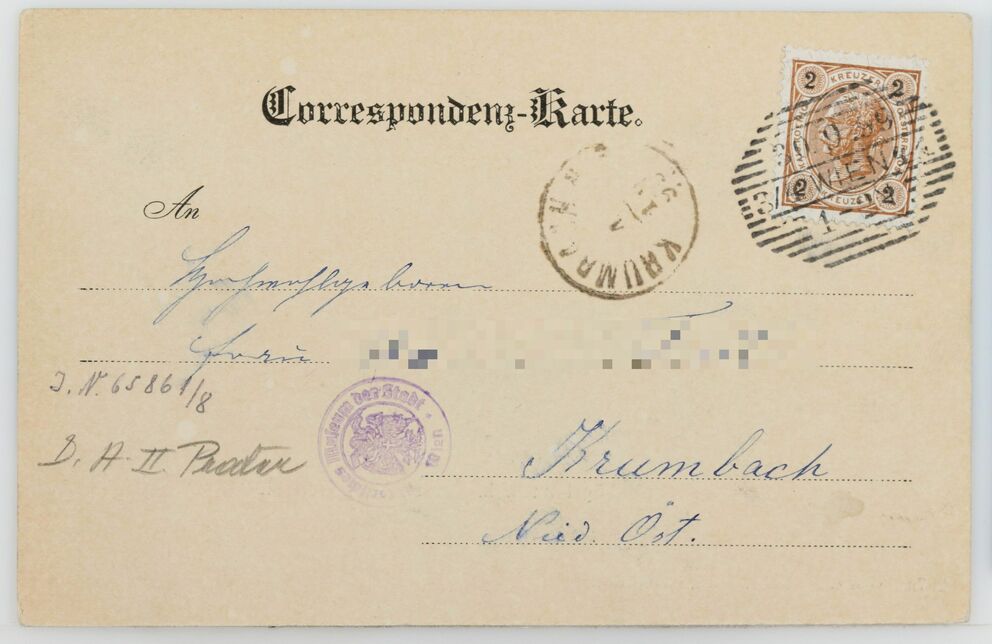 Correspondenz-Karte.
2 KREUZER 2
WIEN
2 KREUZER 2
1
KRUMBACH
An
Hochwohlgeboren
Frau
J. N. 65861/8
D. A. II Prater
Museum der Stadt Wien
Krumbach
Nied. Öst.